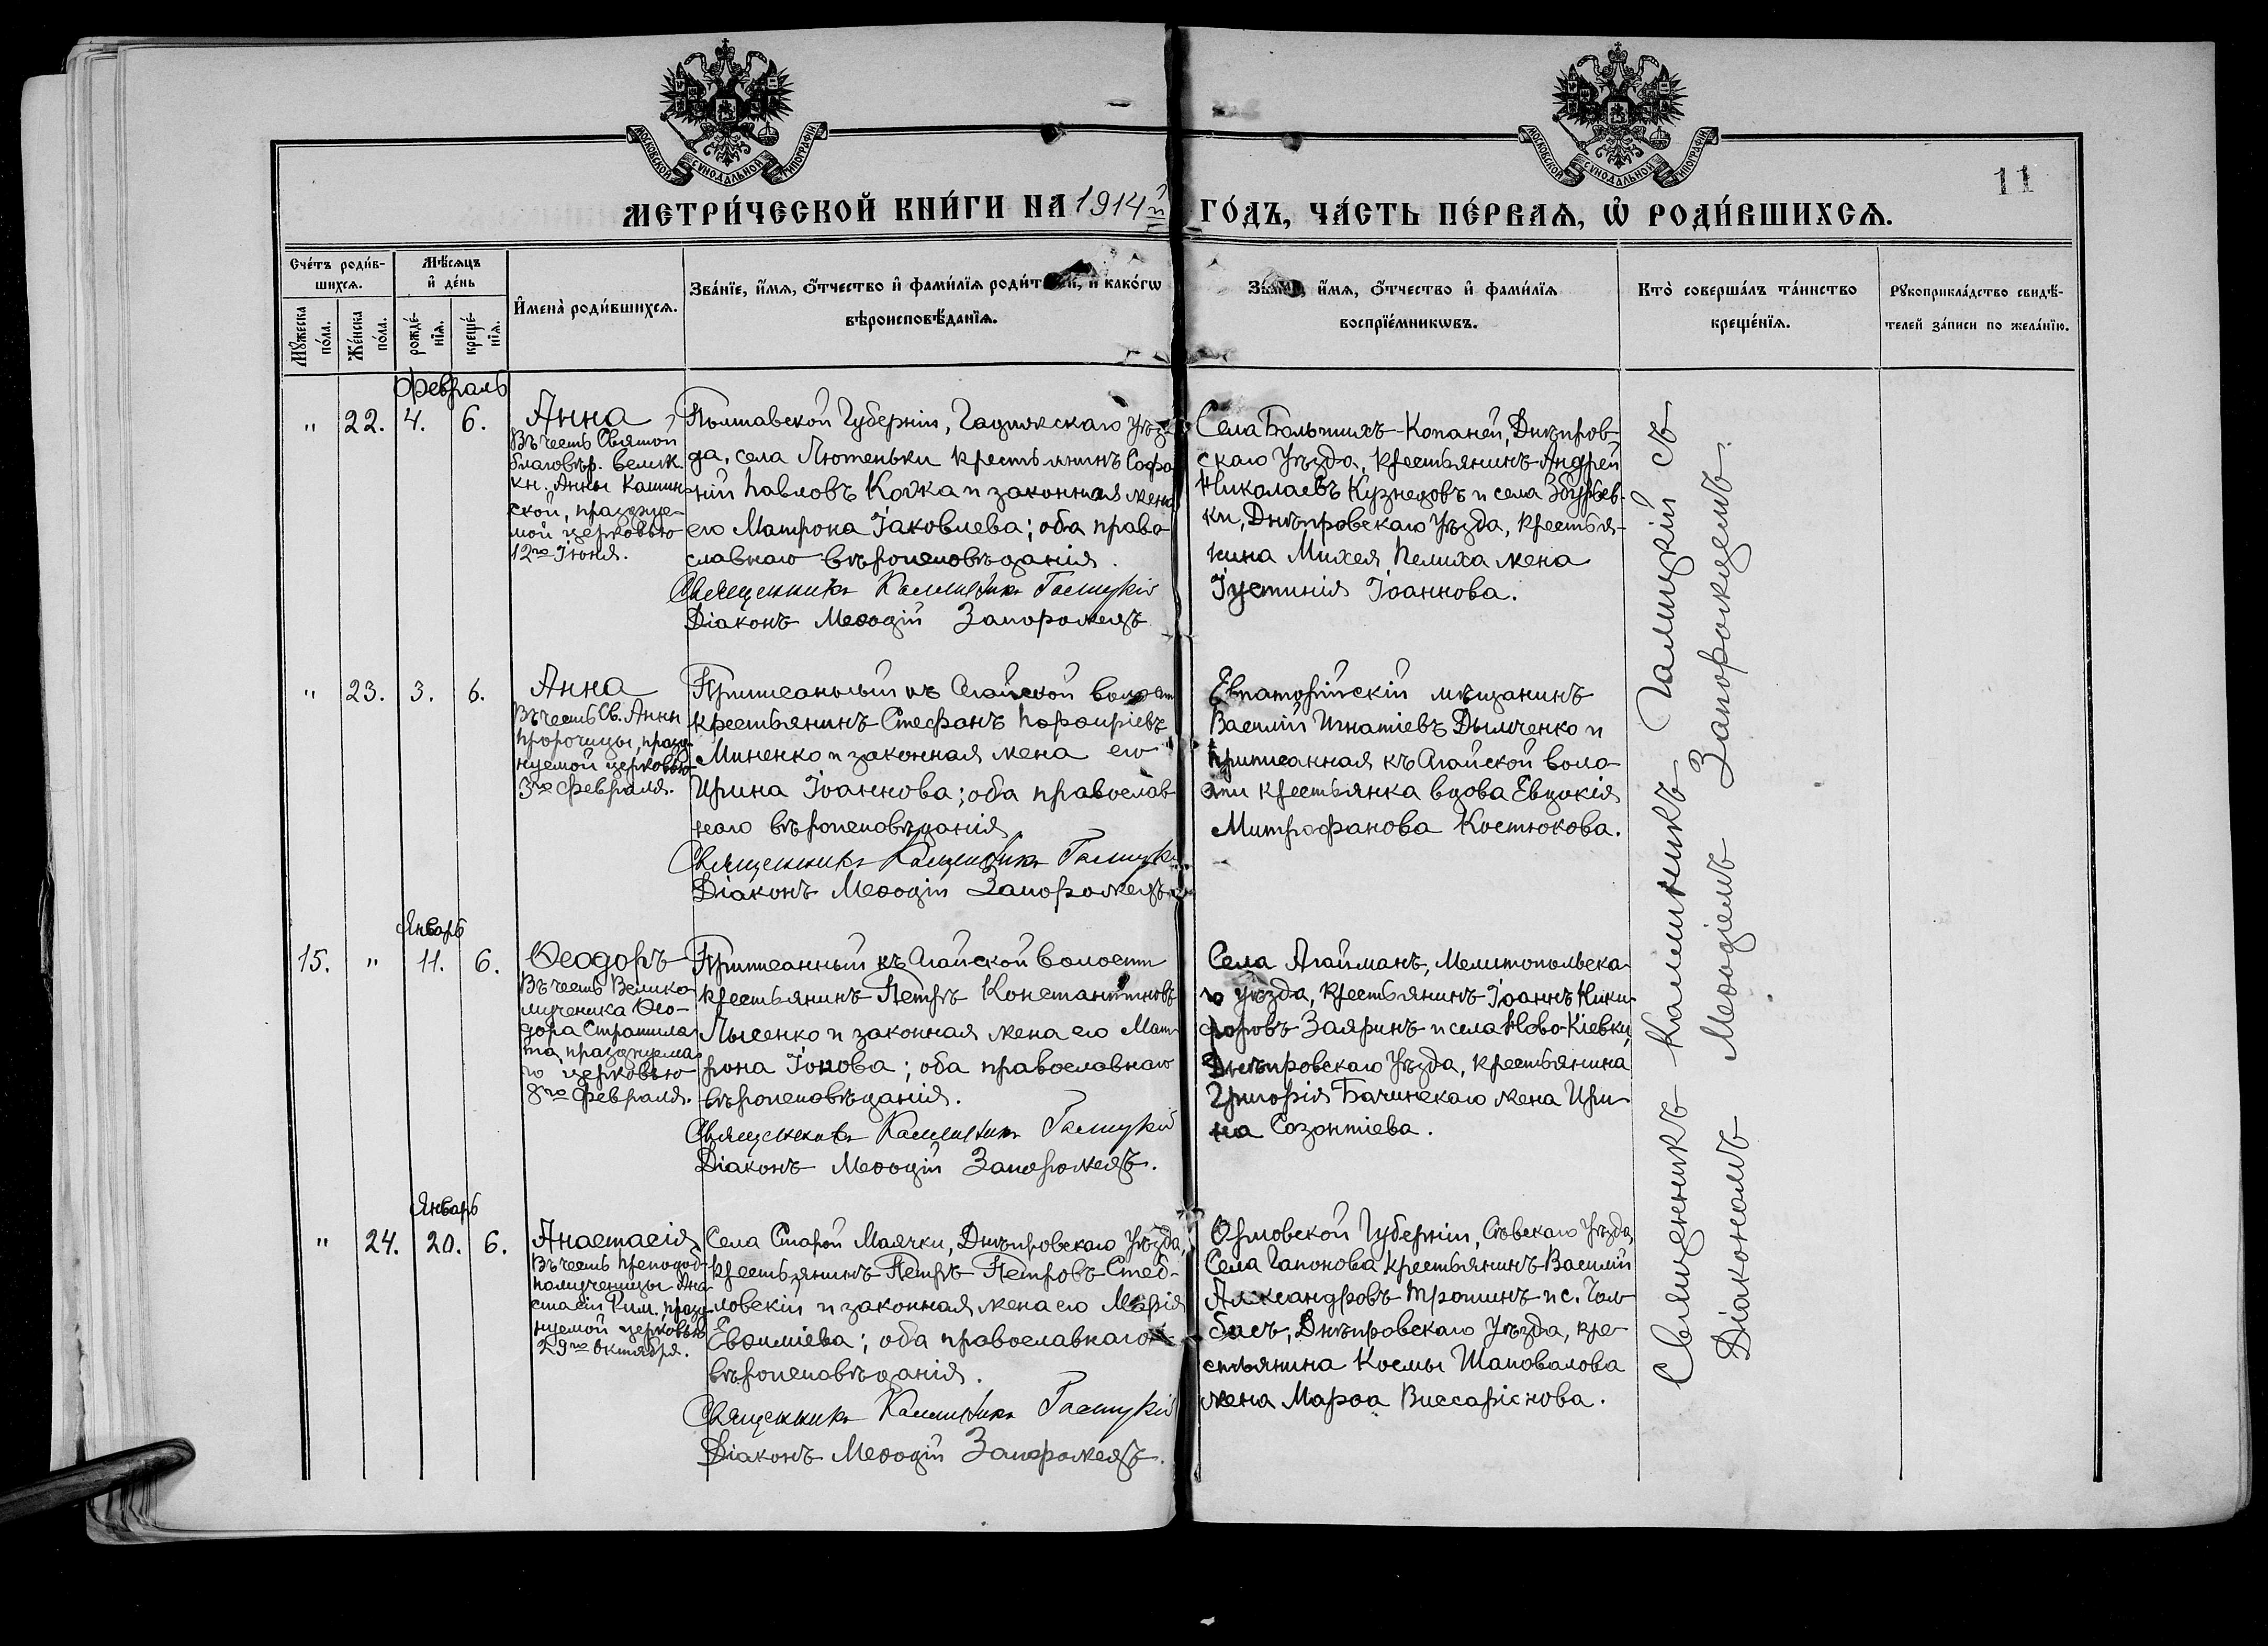 МОСКОВСКОЙ СУНОДАЛЬНОЙ ТИПОГРАФІИ
МОСКОВСКОЙ СУНОДАЛЬНОЙ ТИПОГРАФІИ
11
МЕТРИ́ЧЕСКОЙ КНИ́ГИ НА 1914й ГО́ДЪ, ЧА́СТЬ ПЕ́РВАѦ, Ѡ РОДИ́ВШИХСѦ.
Сче́тъ роди́в-
шихсѧ.
Мꙋ́жеска
по́ла.
Же́нска
по́ла.
Мѣ́сѧцъ
и҆ де́нь
рожде́-
нїѧ.
креще́-
нїѧ.
И҆мена̀ роди́вшихсѧ.
Зва́нїе, и҆́мѧ, ѻ҆́тчество и҆ фами́лїѧ роди́телей, и҆ како́гѡ
вѣроисповѣ́данїѧ.
Зва́нїе, и҆́мѧ, ѻ҆́тчество и҆ фами́лїѧ
воспрїе́мникѡвъ.
Кто̀ соверша́лъ та́инство
креще́нїѧ.
Рꙋкоприкла́дство свидѣ́-
телей за́писи по жела́нїю.
Февраль
" 22. 4. 6.
Анна,
Въ честь Святой
благовѣр. велик.
кн. Анны Кашин-
ской, праздуе-
мой церковью
12го Іюня.
Полтавской Губерніи, Гадячскаго Уѣз-
да, села Лютеньки крестьянинъ Софро-
ній Павловъ Кочка и законная жена
его Матрона Іаковлева; оба право-
славнаго вѣроисповѣданія.
Священникъ Каллиникъ Галицкій
Діаконъ Меѳодій Запорожецъ
Села Большихъ-Копаней, Днѣпров-
скаго Уѣзда, крестьянинъ Андрей
Николаевъ Кузнецовъ и села Збурьев-
ки, Днѣпровскаго Уѣзда, крестья-
нина Михея Пелиха жена
Іустинія Іоаннова.
" 23. 3. 6.
Анна
Въ честь Св. Анны
Пророчицы, празд-
нуемой церковью
3го февраля.
Приписанный къ Агайской волости
крестьянинъ Стефанъ Порфиріевъ
Миненко и законная жена его
Ирина Іоаннова; оба православ-
наго вѣроисповѣданія.
Священникъ Каллиникъ Галицкій
Діаконъ Меѳодій Запорожецъ
Евпаторійскій мѣщанинъ
Василій Игнатіевъ Дымченко и
приписанная къ Агайской воло-
сти крестьянка вдова Евдокія
Митрофанова Костюкова.
Январь
15. " 11. 6.
Ѳеодоръ
Въ честь Велико-
мученика Ѳео-
дора Стратила-
та, празднуема-
го церковью
8го февраля.
Приписанный къ Агайской волости
крестьянинъ Петръ Константиновъ
Лысенко и законная жена его Мат-
рона Іовова; оба православнаго
вѣроисповѣданія.
Священникъ Каллиникъ Галицкій
Діаконъ Меѳодій Запорожецъ.
Села Агайманъ, Мелитопольска-
го уѣзда, крестьянинъ Іоаннъ Ники-
форовъ Заяринъ и села Ново-Кіевки,
Днѣпровскаго Уѣзда, крестьянина
Григорія Бачинскаго жена Ири-
на Созонтіева.
Январь
" 24. 20. 6.
Анастасія
Въ честь Преподоб-
номученицы Ана-
стасіи Рим. празд-
нуемой церковью
29го Октября.
Села Старой Маячки, Днѣпровскаго Уѣзда,
крестьянинъ Петръ Петровъ Стеб-
ловскій и законная жена его Марія
Евѳиміева; оба православнаго
вѣроисповѣданія.
Священникъ Каллиникъ Галицкій
Діаконъ Меѳодій Запорожецъ.
Орловской Губерніи, Сѣвскаго Уѣзда,
Села Гапонова крестьянинъ Василій
Александровъ Трошинъ и с. Чол-
басъ, Днѣпровскаго Уѣзда, кре-
стьянина Космы Шаповалова
жена Марѳа Виссаріонова.
Священникъ Каллиникъ Галицкій съ
Діакономъ Меѳодіемъ Запорожцемъ.